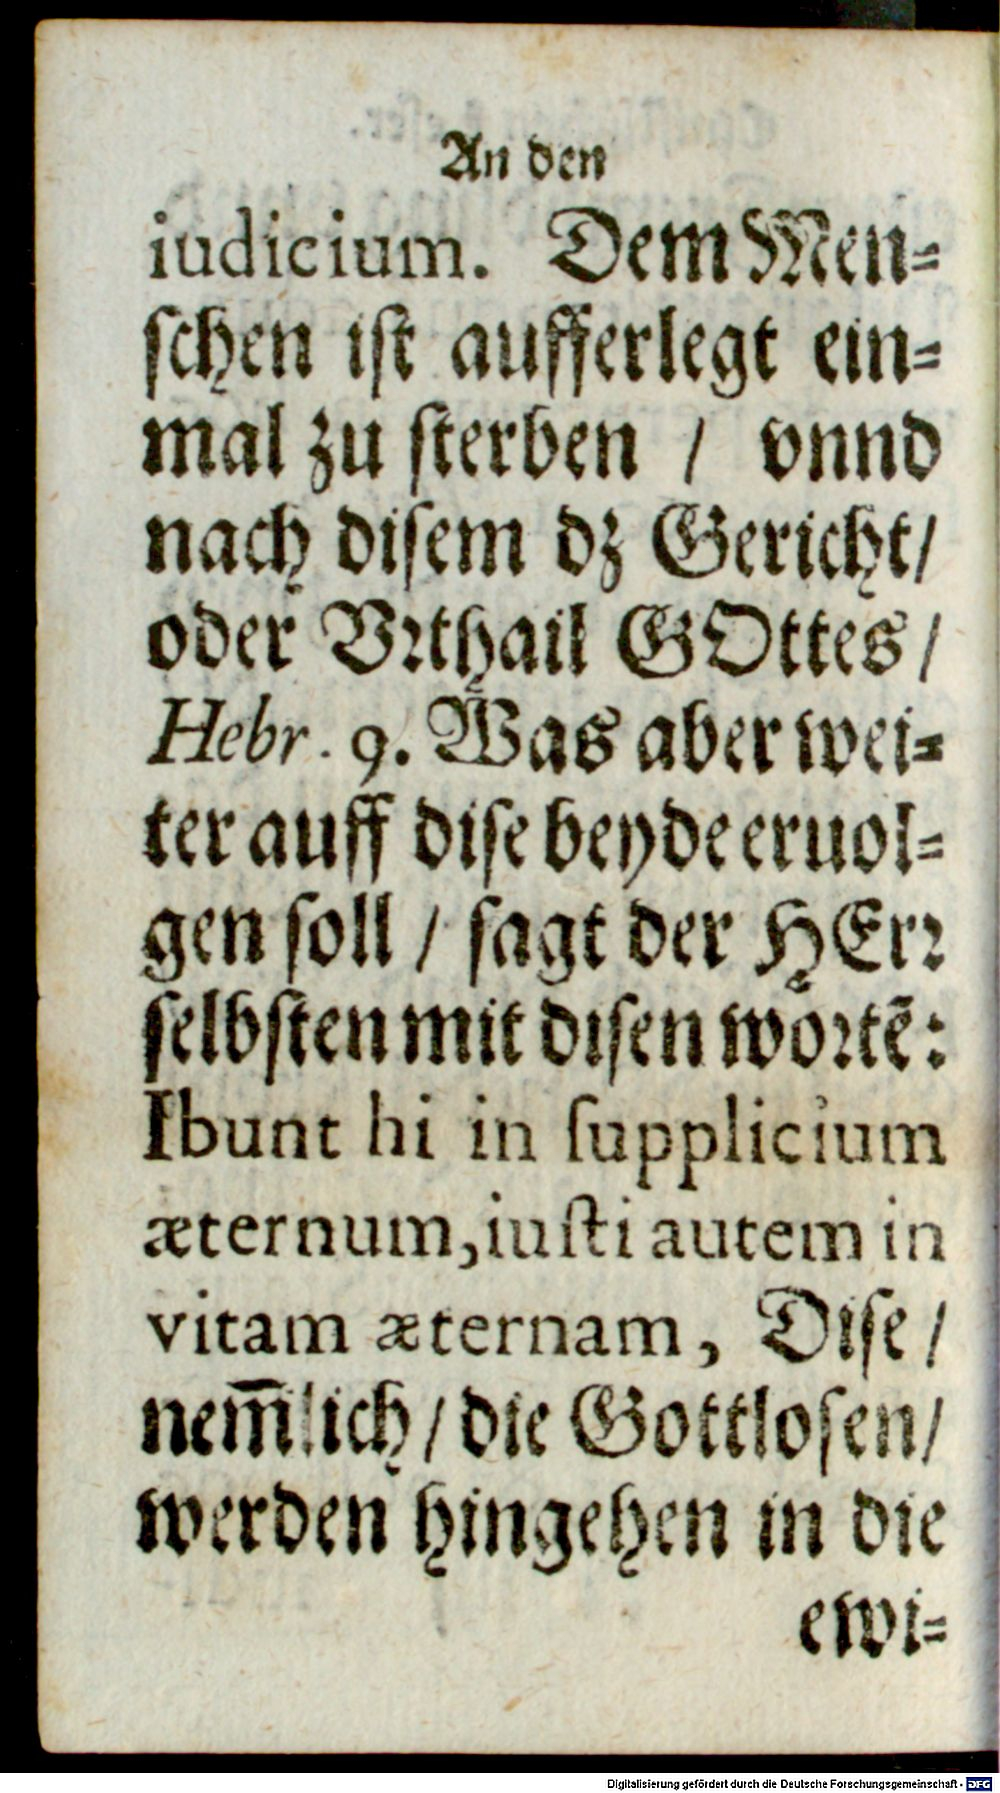 An den
iudicium. Dem Men-
ſchen iſt aufferlegt ein-
mal zu ſterben / vnnd
nach diſem dz Gericht/
oder Vꝛthail GOttes /
Hebr. 9. Was aber wei-
ter auff diſe beyde eruol-
gen ſoll / ſagt der HErꝛ
ſelbſten mit diſen woꝛtẽ:
Ibunt hi in ſupplicium
æternum, iuſti autem in
vitam æternam, Diſe /
nem̃lich / die Gottloſen /
werden hingehen in die
ewi-
Digitalisierung gefördert durch die Deutsche Forschungsgemeinschaft - DFG